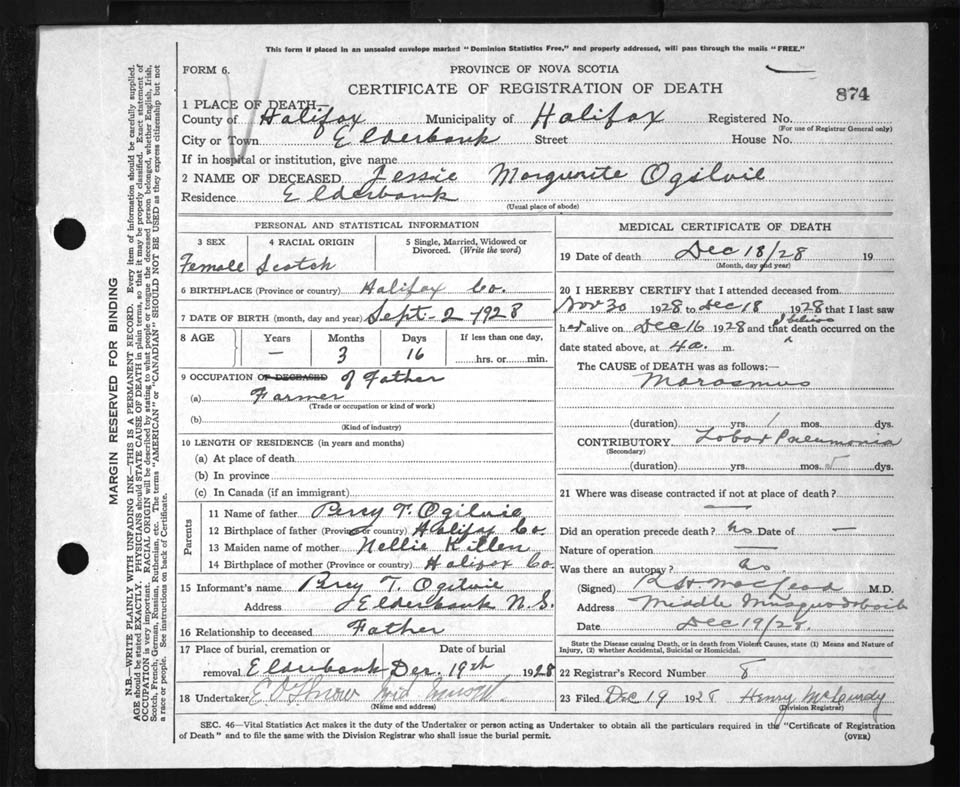 This form if placed in an unsealed envelope marked "Dominion Statistics Free," and properly addressed, will pass through the mails "FREE."
FORM 6.
PROVINCE OF NOVA SCOTIA
CERTIFICATE OF REGISTRATION OF DEATH
874
1 PLACE OF DEATH—
County of Halifax Municipality of Halifax Registered No.
(For use of Registrar General only)
City or Town Elderbank Street House No.
If in hospital or institution, give name
2 NAME OF DECEASED Jessie Marguerite Ogilvie
Residence Elderbank
(Usual place of abode)
PERSONAL AND STATISTICAL INFORMATION
3 SEX 4 RACIAL ORIGIN 5 Single, Married, Widowed or
Divorced. (Write the word)
Female Scotch
6 BIRTHPLACE (Province or country) Halifax Co.
7 DATE OF BIRTH (month, day and year) Sept - 2 - 1928
8 AGE Years Months Days If less than one day,
— 3 16 hrs. or min.
9 OCCUPATION OF DECEASED of Father
(a) Farmer
(Trade or occupation or kind of work)
(b)
(Kind of industry)
10 LENGTH OF RESIDENCE (in years and months)
(a) At place of death
(b) In province
(c) In Canada (if an immigrant)
Parents
11 Name of father Percy T. Ogilvie
12 Birthplace of father (Province or country) Halifax Co.
13 Maiden name of mother Nellie Killen
14 Birthplace of mother (Province or country) Halifax Co.
15 Informant's name Percy T. Ogilvie
Address Elderbank N.S.
16 Relationship to deceased Father
17 Place of burial, cremation or Date of burial
removal Elderbank Dec. 19th 1928
18 Undertaker
(Name and address)
MEDICAL CERTIFICATE OF DEATH
19 Date of death Dec 18/28 19
(Month, day and year)
20 I HEREBY CERTIFY that I attended deceased from
Nov 30 1928 to Dec 18 1928 that I last saw
her alive on Dec 16 1928 and I believe that death occurred on the
date stated above, at 4 a. m.
The CAUSE of DEATH was as follows:—
Marasmus
(duration) yrs. 1 mos. dys.
CONTRIBUTORY Lobar Pneumonia
(Secondary)
(duration) yrs. mos. 5 dys.
21 Where was disease contracted if not at place of death?
—
Did an operation precede death? no Date of —
Nature of operation —
Was there an autopsy? no.
(Signed) MacLeod M.D.
Address Middle Musquodoboit
Date Dec 19/28.
State the Disease causing Death, or in death from Violent Causes, state (1) Means and Nature of
Injury, (2) whether Accidental, Suicidal or Homicidal.
22 Registrar's Record Number 8
23 Filed Dec 19 1928 Henry McCurdy
(Division Registrar)
SEC. 46—Vital Statistics Act makes it the duty of the Undertaker or person acting as Undertaker to obtain all the particulars required in the "Certificate of Registration
of Death" and to file the same with the Division Registrar who shall issue the burial permit.
(OVER)
MARGIN RESERVED FOR BINDING
N.B.—WRITE PLAINLY WITH UNFADING INK—THIS IS A PERMANENT RECORD. Every item of information should be carefully supplied.
AGE should be stated EXACTLY. PHYSICIANS should STATE CAUSE OF DEATH in plain terms, so that it may be properly classified. Exact statement of
OCCUPATION is very important. RACIAL ORIGIN will be described by stating to what people or tongue the deceased person belonged, whether English, Irish,
Scotch, French, German, Russian, Ruthenian, etc. The terms "AMERICAN" or "CANADIAN" SHOULD NOT BE USED as they express citizenship but not
a race or people. See instructions on back of Certificate.